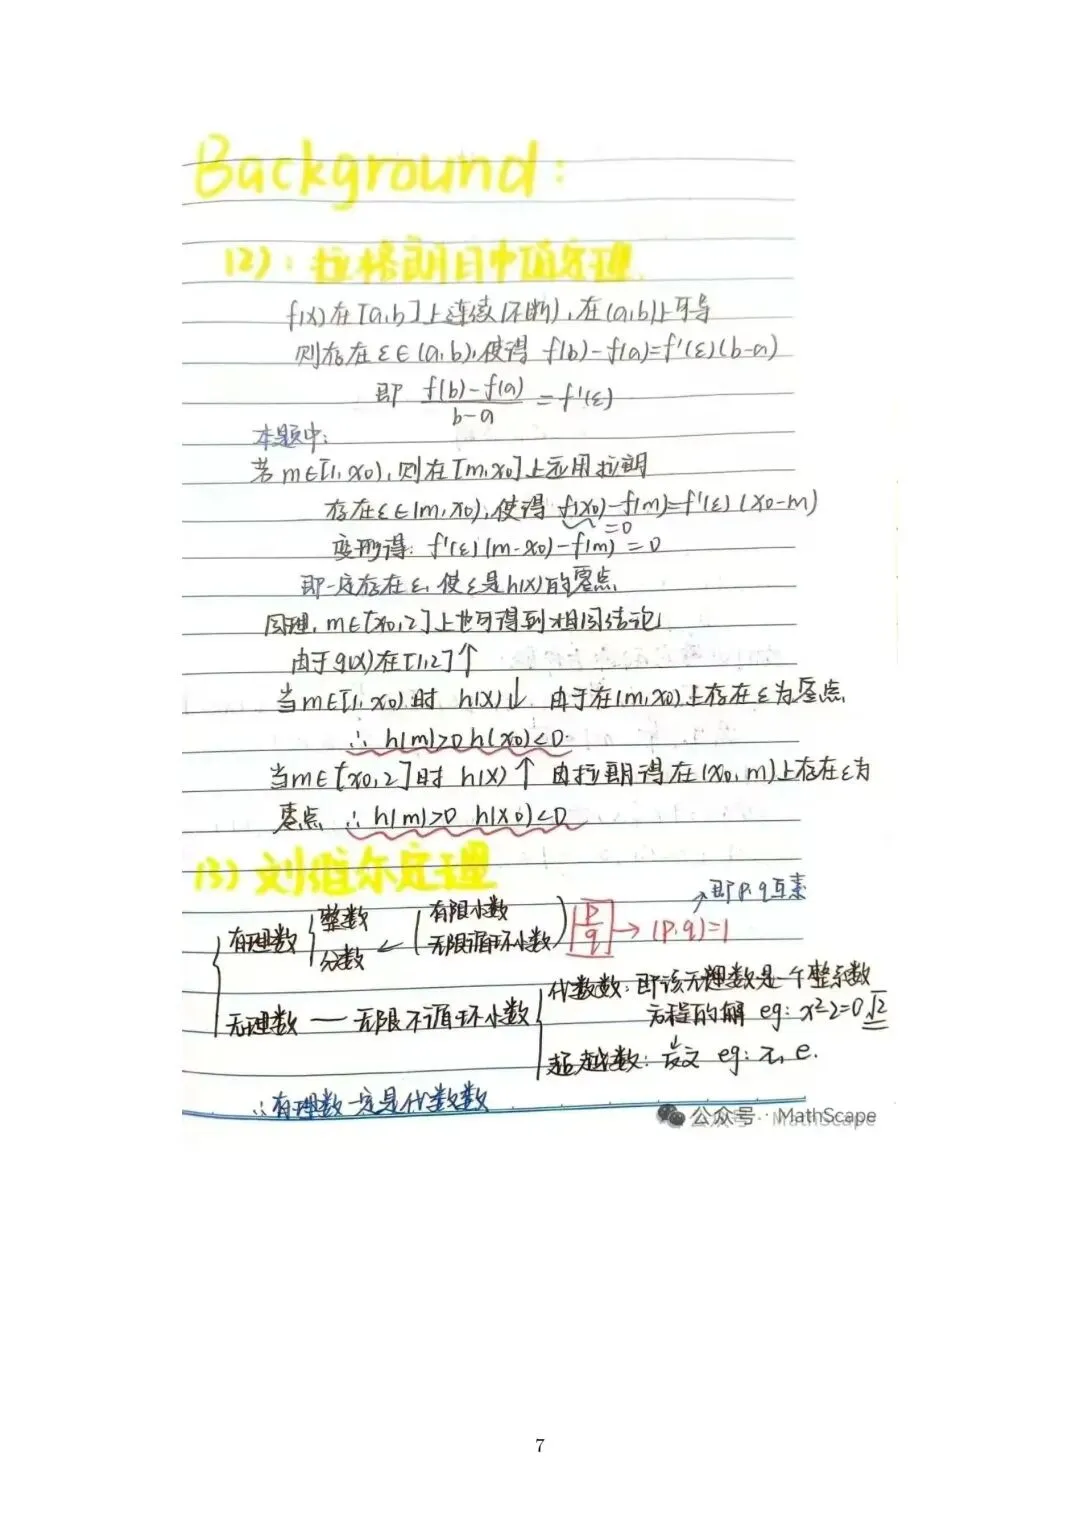 Background:
(2): 拉格朗日中值定理.
f(x)在[a,b]上连续(不断),在(a,b)上可导
则存在ε∈(a,b),使得 f(b)-f(a)=f'(ε)(b-a)
即 f(b)-f(a) / b-a = f'(ε)
本题中:
若m∈[1,x0),则在[m,x0]上应用拉朗
存在ε∈(m,x0),使得 f(x0)-f(m)=f'(ε)(x0-m)
=0
变形得: f'(ε)(m-x0)-f(m)=0
即一定存在ε,使ε是h(x)的零点
同理,m∈[x0,2]上也可得到相同结论
由于g(x)在[1,2]↑
当m∈[1,x0)时 h(x)↓ 由于在(m,x0)上存在ε为零点
∴ h(m)>0 h(x0)<0
当m∈[x0,2]时 h(x)↑ 由拉朗得在(x0,m)上存在ε为
零点 ∴ h(m)>0 h(x0)<0
(3) 刘维尔定理
→即p,q互素
有理数 { 整数 分数 ← (有限小数 无限循环小数) p/q → (p,q)=1
代数数:即该无理数是一个整系数
方程的解 eg: x²-2=0 √2
无理数 — 无限不循环小数
超越数: 定义 eg: π, e.
∴有理数一定是代数数
公众号 · MathScape
7